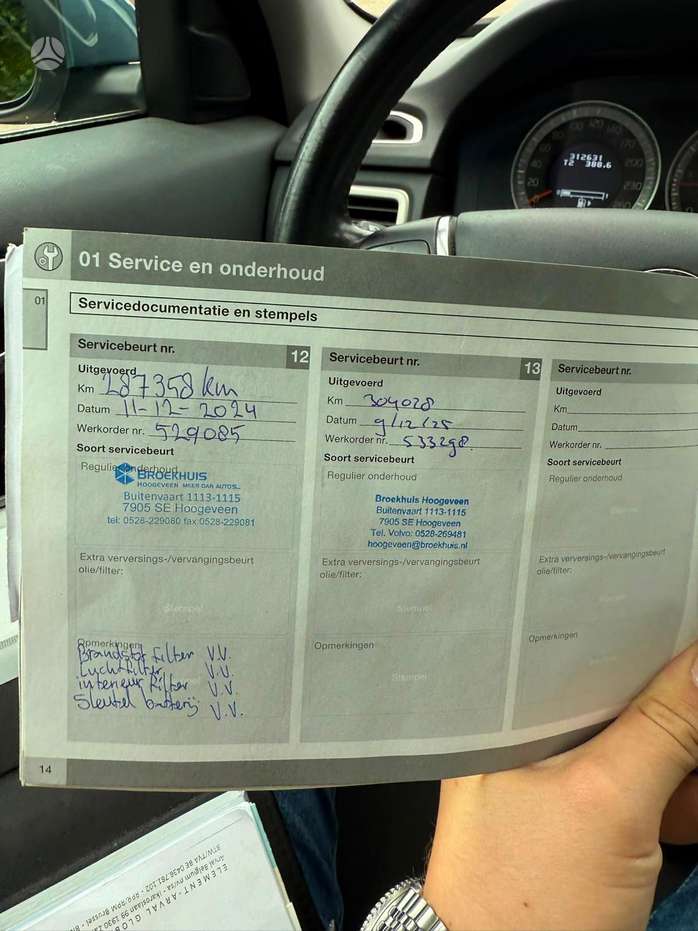 312631
T2 388.6
01 Service en onderhoud
01
Servicedocumentatie en stempels
Servicebeurt nr. 12
Uitgevoerd
Km 287358 km
Datum 11-12-2024
Werkorder nr. 529085
Soort servicebeurt
Regulier onderhoud
BROEKHUIS
HOOGEVEEN MEER DAN AUTO'S...
Buitenvaart 1113-1115
7905 SE Hoogeveen
tel: 0528-229080 fax:0528-229081
Extra verversings-/vervangingsbeurt
olie/filter:
Stempel
Opmerkingen
Brandstof filter V.V.
Luchtfilter V.V.
interieur filter V.V.
Sleutel batterij V.V.
14
Servicebeurt nr. 13
Uitgevoerd
Km 304028
Datum 9/12/25
Werkorder nr. 533298
Soort servicebeurt
Regulier onderhoud
Broekhuis Hoogeveen
Buitenvaart 1113-1115
7905 SE Hoogeveen
Tel. Volvo: 0528-269481
hoogeveen@broekhuis.nl
Extra verversings-/vervangingsbeurt
olie/filter:
Stempel
Opmerkingen
Stempel
Servicebeurt nr.
Uitgevoerd
Km
Datum
Werkorder nr.
Soort servicebeurt
Regulier onderhoud
Extra verversings-/vervangingsbeurt
olie/filter:
Opmerkingen